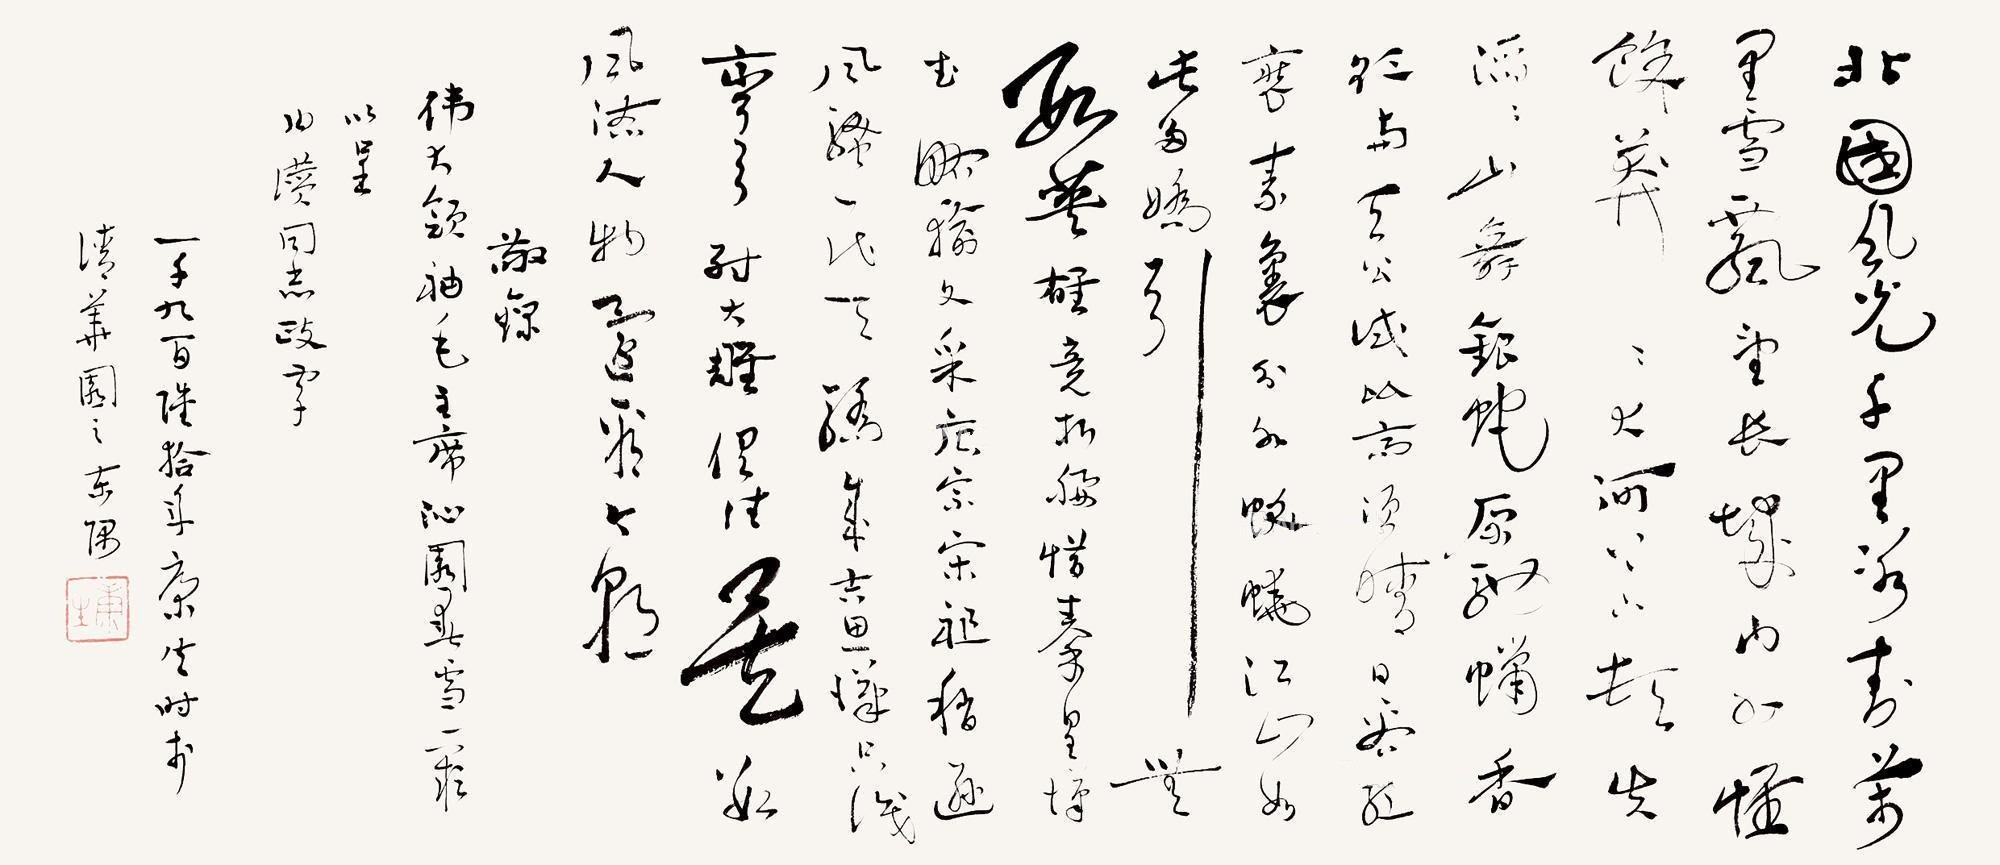 北國风光千里冰封萬
里雪飄望长城内外惟
餘莽〻大河上下頓失
滔〻山舞銀蛇原馳蠟香
欲与天公试比高须晴日看红
裝素裹分外妖娆江山如
此多嬌引無
数英雄竞折腰惜秦皇漢
武略输文采唐宗宋祖稍遜
风骚一代天骄成吉思漢只识
弯弓射大雕俱往矣数
风流人物還看今朝
敬録
伟大領袖毛主席沁園春雪一歌
以呈
同志政字
一千九百陸拾年康生时於
清華園之东隅
康生